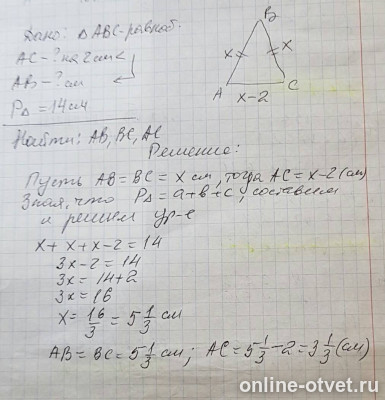 Дано: △ABC-равноб.
AC - ? на 2см <
AB - ? см
P△ = 14см
Найти: AB, BC, AC
B
x x
A C
x-2
Решение:
Пусть AB=BC=x см, тогда AC=x-2(см)
Зная, что P△=a+b+c, составим
и решим ур-е
x+x+x-2=14
3x-2=14
3x=14+2
3x=16
x=16/3=5 1/3 см
AB=BC=5 1/3 см; AC=5 1/3-2=3 1/3 (см)
online-otvet.ru